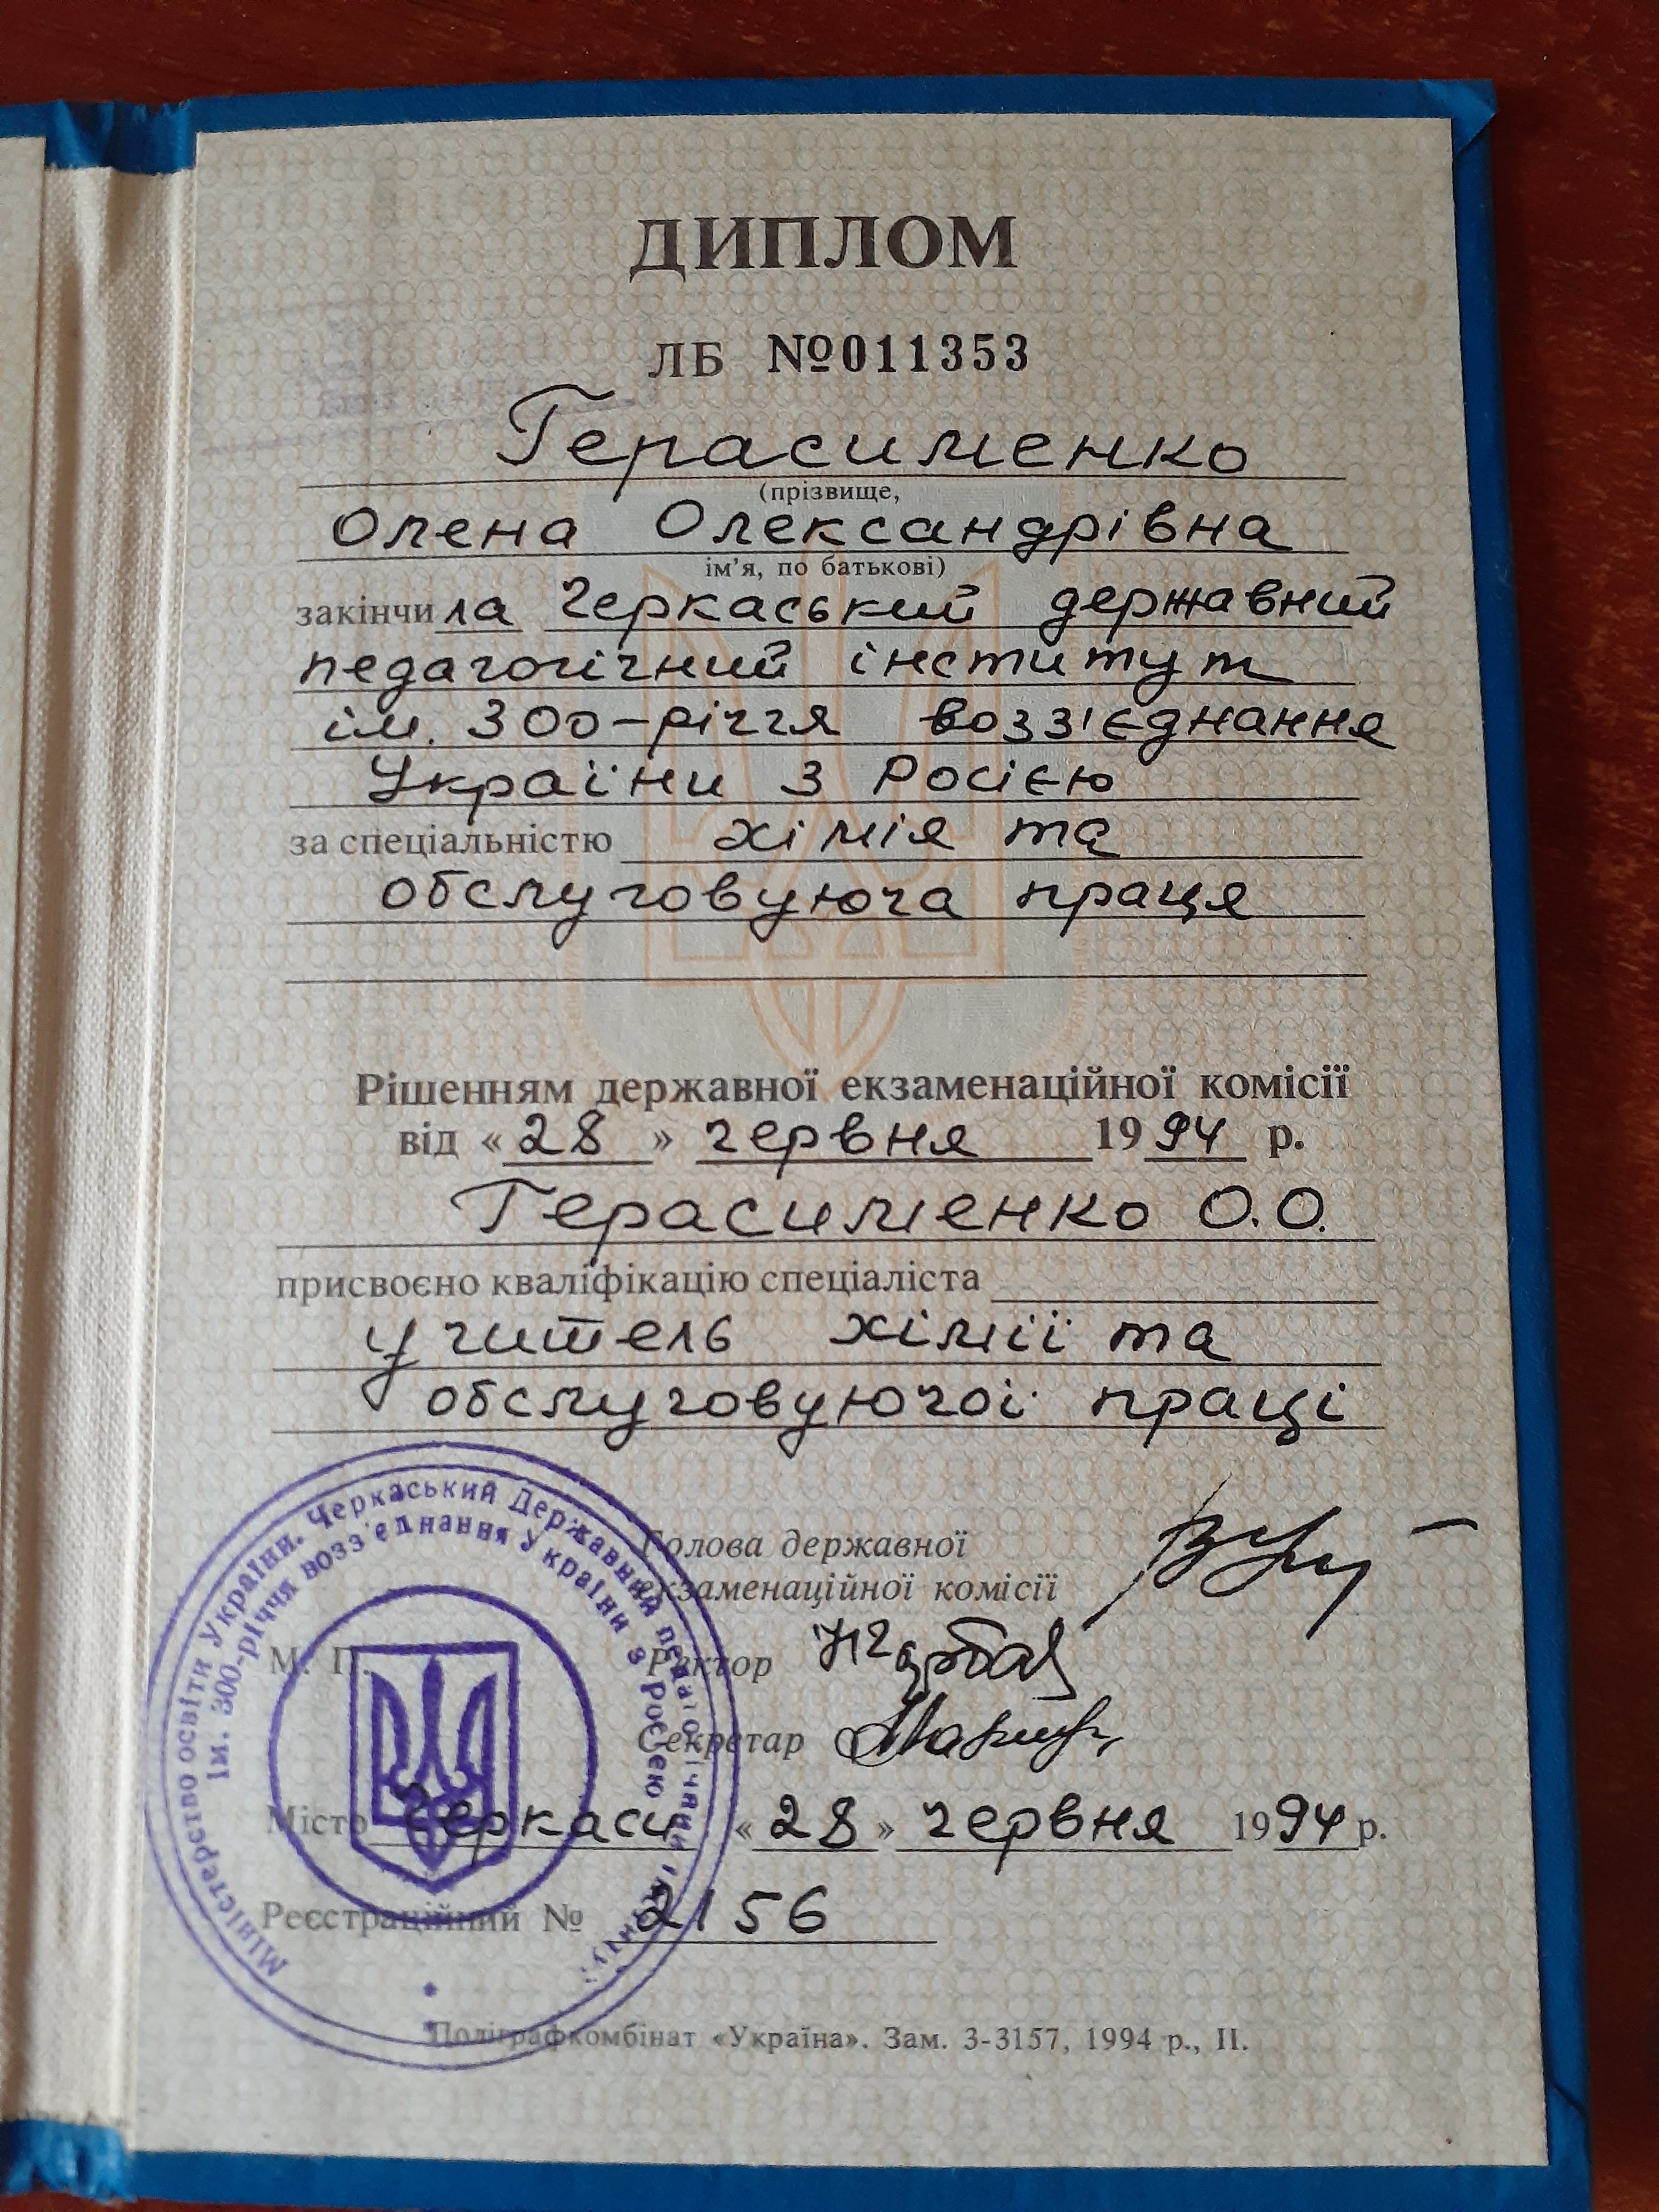 ДИПЛОМ
ЛБ №011353
Герасименко
(прізвище,
Олена Олександрівна
ім'я, по батькові)
закінчила Черкаський державний
педагогічний інститут
ім. 300-річчя возз'єднання
України з Росією
за спеціальністю хімія та
обслуговуюча праця
Рішенням державної екзаменаційної комісії
від «28» червня 1994 р.
Герасименко О.О.
присвоєно кваліфікацію спеціаліста
учитель хімії та
обслуговуючої праці
Голова державної
екзаменаційної комісії
М. П.
Ректор
Секретар
Місто Черкаси «28» червня 1994 р.
Реєстраційний № 2156
Міністерство освіти України. Черкаський Державний педагогічний інститут
ім. 300-річчя возз'єднання України з Росією
Поліграфкомбінат «Україна». Зам. 3-3157, 1994 р., II.